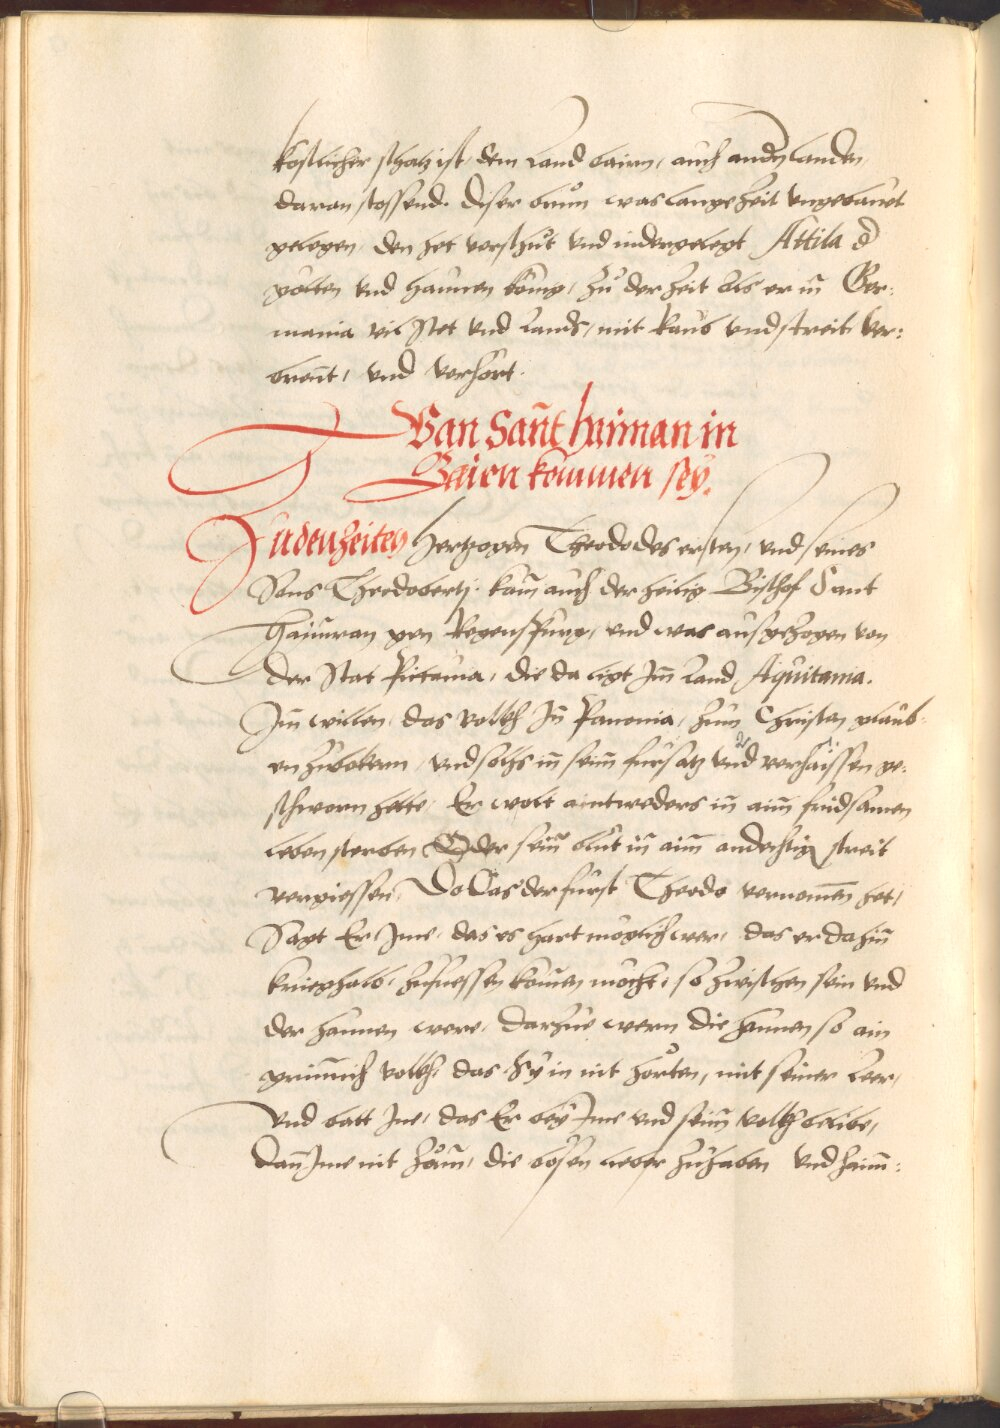 kostlicher schatz ist, dem Land bairn, auch andn landen,
daran stossend. Diser brun̄ was lange zeit vngebauet
gelegen, den het verschut vnd nidergelegt Attila d
gotten vnd haunen könig, zu der zeit als er in̄ Ger:
mania vil Stet vnd Lands, mit Raub vnd streit ver:
brent, vnd verhört.
Wan Sant haiman in
Baiern kommen sey.
Zu den zeiten hertzogen Theodo des ersten, vnd seines
Sons Theodoberti. kam̄ auch der heilig Bischof Sant
Haim̄ran gen Regenspurg, vnd was ausgezogen von
der Stat Pictauia, die da ligt Im̄ Land Aquitania.
Im̄ willen, das volkh In̄ Panonia, zum Christen glaub:
en zubekern, vnd solhs in̄ seim̄ fursatz vnd verhaissen ge:
schworn hette, Er wolt aintweders in̄ aim̄ fridsamen
leben sterben Oder sein̄ blut in̄ aim̄ andechtigen streit
vergiessen, Do Das der furst Theodo vernomen het,
Sagt Er Ime, das es hart moglich wer, das er dahin̄
kriegshalb, zufuessen komen mocht, so zwischen sein vnd
der haunen were, darzue wern die haunen so ain
grim̄ich volkh, das Sy in nit hörten, mit seiner Leer,
vnd batt Ine, das Er bey Ime vnd seim̄ volkh belibe,
dan̄ Ime nit zäm̄, die bösen lieber zuhaben vnd haim̄: